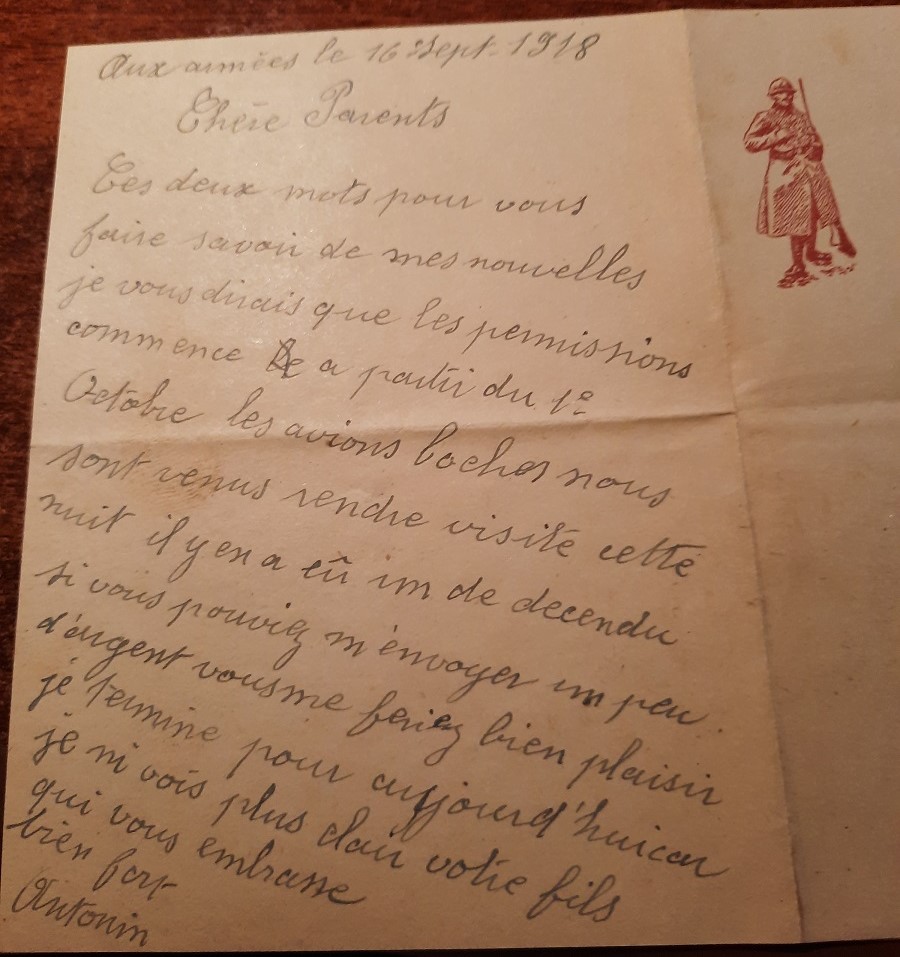 Aux armées le 16 Sept. 1918
Chère Parents
Ces deux mots pour vous
faire savoir de mes nouvelles
je vous dirais que les permissions
commence a partir du 1e
Octobre les avions boches nous
sont venus rendre visite cette
nuit il y en a eû un de decendu
si vous pouviez m'envoyer un peu
d'argent vous me feriez bien plaisir
je termine pour aujourd'hui car
je ni vois plus clair votre fils
qui vous embrasse
bien fort
Antonin